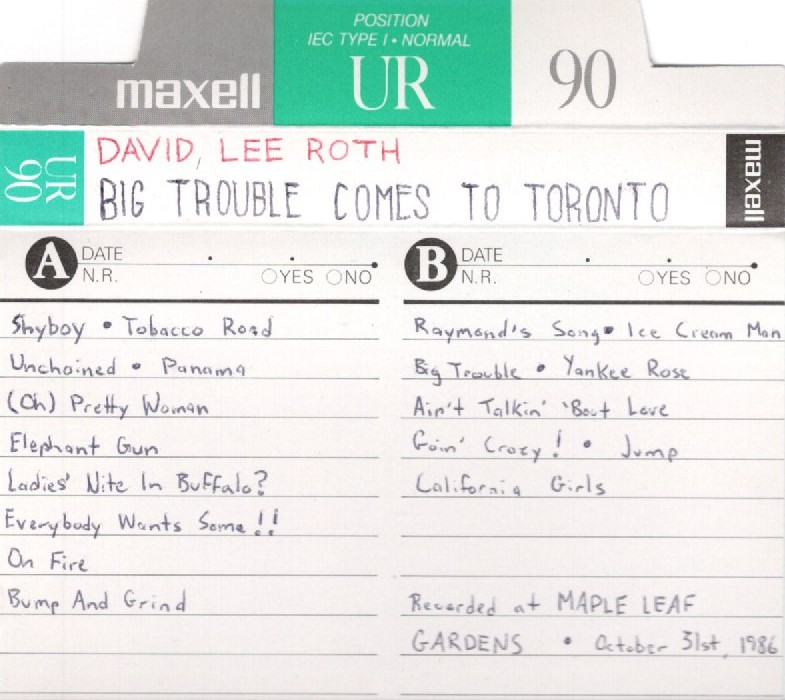 POSITION
IEC TYPE I • NORMAL
maxell UR 90
UR 90
DAVID, LEE ROTH
BIG TROUBLE COMES TO TORONTO
maxell
A DATE
N.R. ○YES ○NO
Shyboy • Tobacco Road
Unchained • Panama
(Oh) Pretty Woman
Elephant Gun
Ladies' Nite In Buffalo?
Everybody Wants Some!!
On Fire
Bump And Grind
B DATE
N.R. ○YES ○NO
Raymond's Song • Ice Cream Man
Big Trouble • Yankee Rose
Ain't Talkin' 'Bout Love
Goin' Crazy! • Jump
California Girls
Recorded at MAPLE LEAF
GARDENS • October 31st, 1986